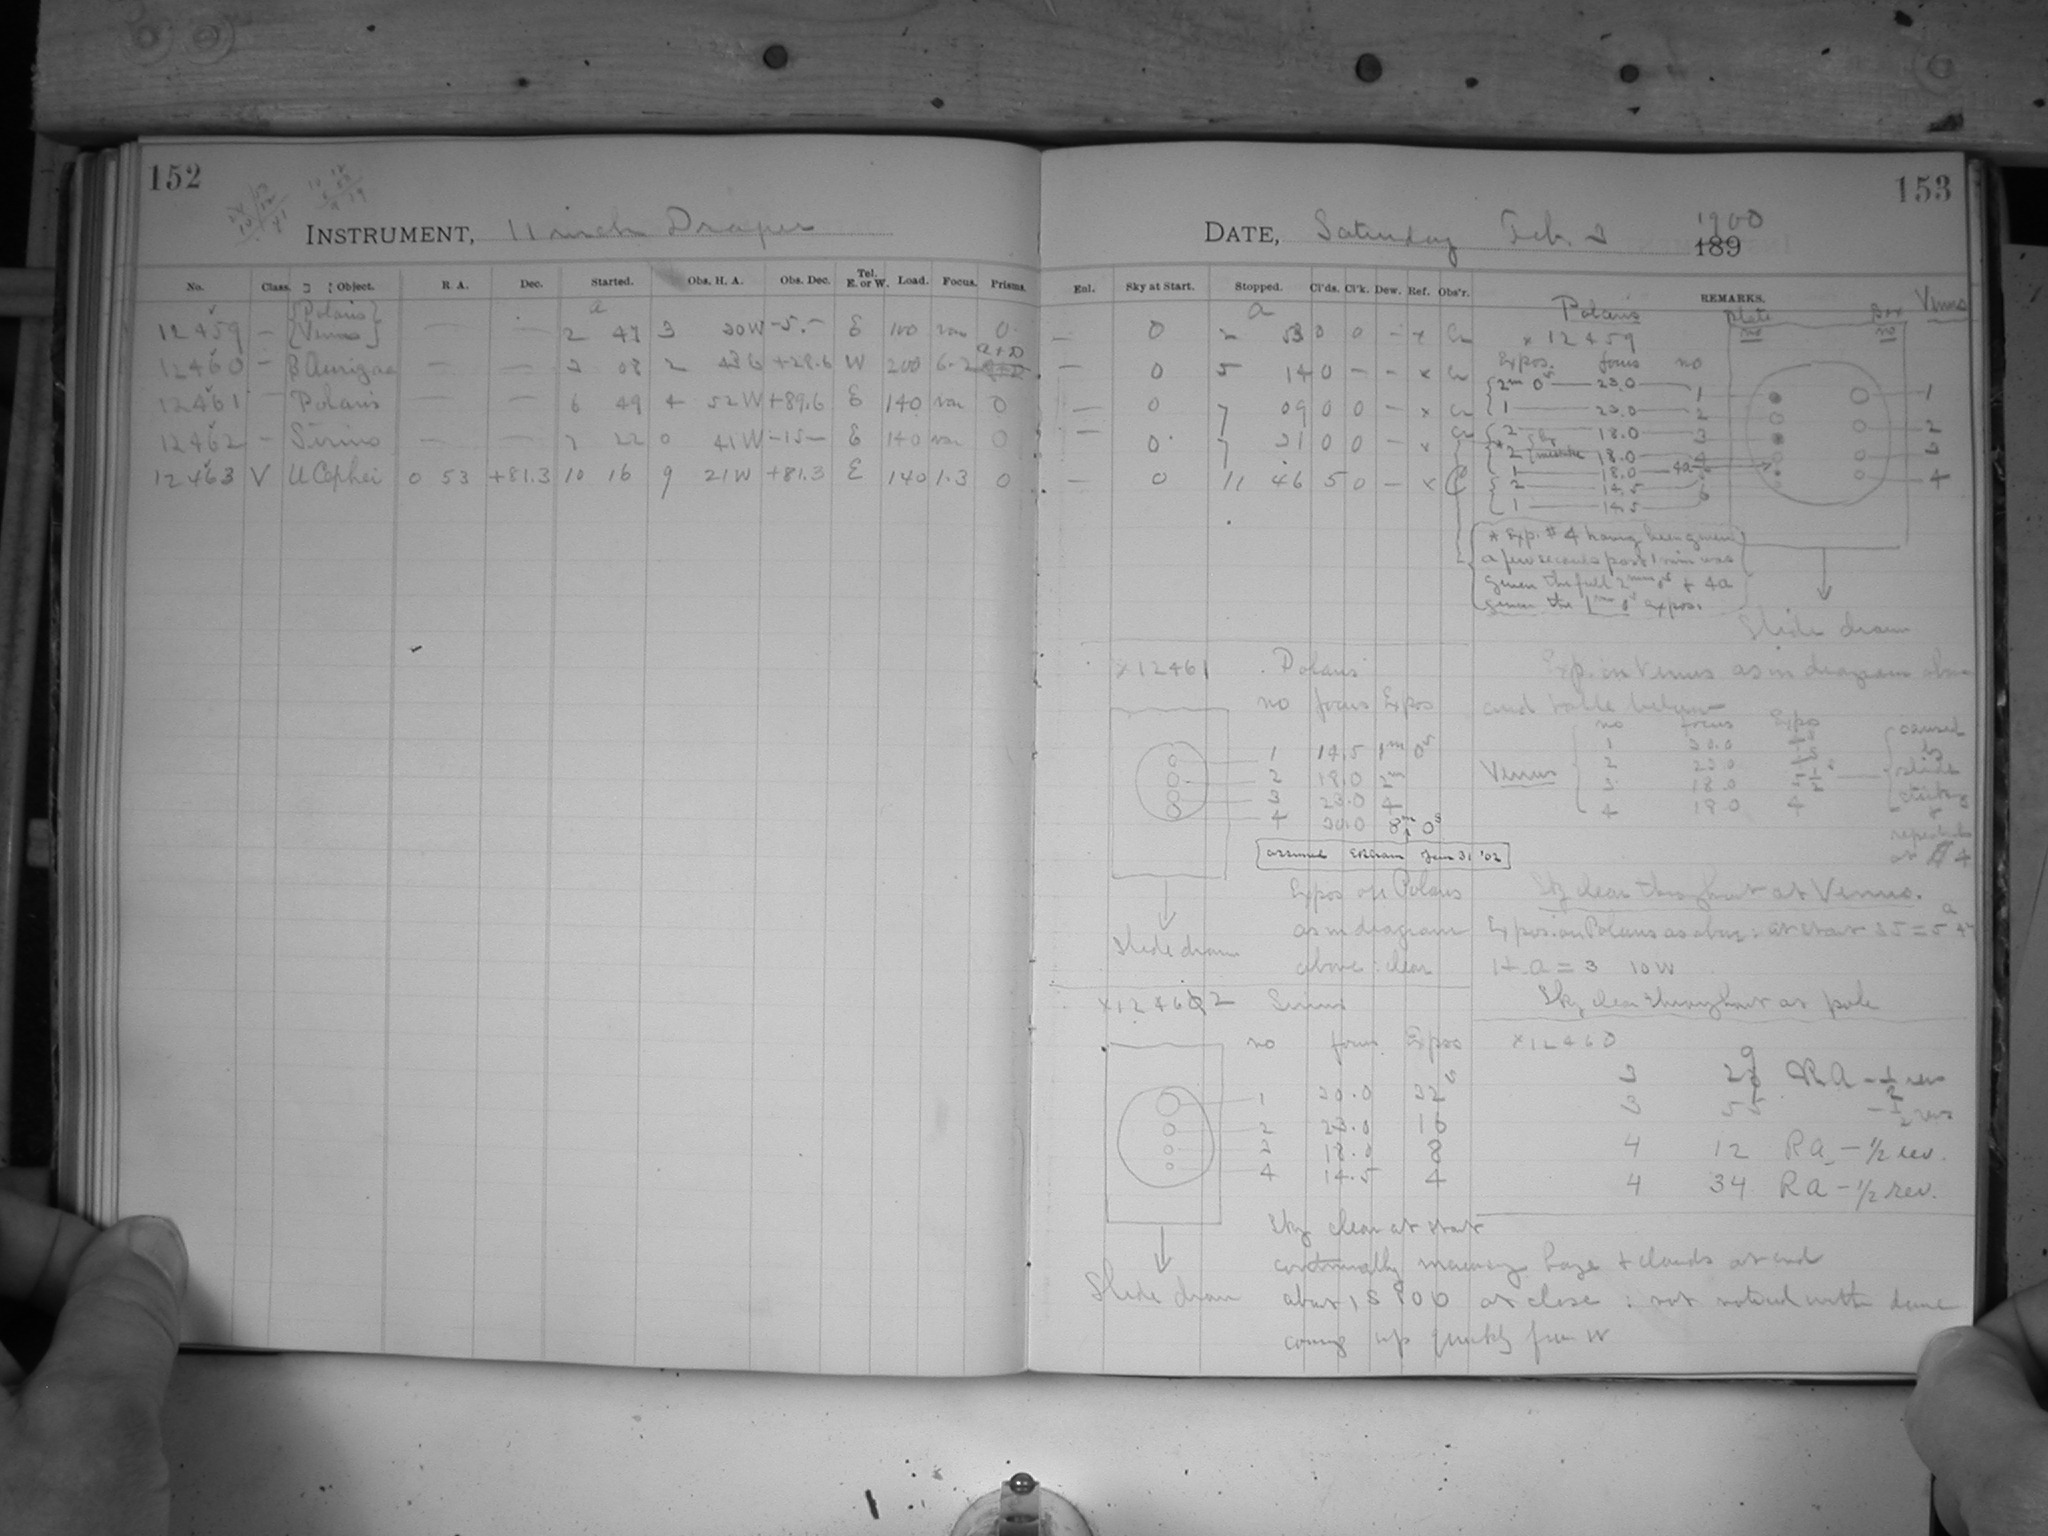 152
INSTRUMENT, 11 inch Draper
No. Class. Object. R. A. Dec. Started. Obs. H. A. Obs. Dec. Tel. E. or W. Load. Focus. Prisms.
a
12459 — {Polaris} {Venus} — — 2 47 3 20W -5.- E 100 var 0
12460 — β Aurigae — — 3 08 2 W 200
12461 — Polaris — — 6 49 4 52W +89.6 E 140 var 0
12462 — Sirius — — 7 22 0 41W -15- E 140 var 0
12463 V U Cephei 0 53 +81.3 10 16 9 21W +81.3 E 140 1.3 0
153
DATE, Saturday Feb. 3 1900 189
Enl. Sky at Start. Stopped. Cl'ds. Cl'k. Dew. Ref. Obs'r. REMARKS.
a
— 0 0 0 — x
— 0 5 14 0 - - x
— 0 7 09 0 0 — x
— 0 7 31 0 0 — x
— 0 11 46 5 0 — x
Polaris plate no no Venus
x 12459
Expos. focus no
2m 0s — 23.0 — 1
1 — 23.0 — 2
2 — 18.0 — 3
* 2 by mistake 18.0 — 4
1 — 18.0 — 4a
2 — 14.5
1 — 14.5 — 6
1
2
3
4
* Exp. # 4 having been given
a few seconds past 1 min was
given the full 2m 0s + 4a
given the 1m 0s expos.
Slide drawn
x12461 Polaris
no focus Expos
1 14.5 1m 0s
2 18.0 2m
3 23.0 4
4 8m 0s
assumed Jan 31 '02
Expos on Polaris
as in diagram
above : clear
Slide drawn
Exp. on Venus as in diagram above
and table below
no focus Expos
Venus
1
2 23.0
3 18.0
4 18.0 4
caused by slide sticking
repeated as # 4
Sky clear throughout at Venus.
Expos. on Polaris as above : at start
H a = 3 10W
Sky clear throughout at pole
x12462 Sirius
no focus Expos
1 32s
2 23.0 16
3 18.0 8
4 14.5 4
Slide drawn
Sky clear at start
continually haze + clouds at end
about at close : not noticed until dome
coming up quickly from W
x12460
3 29 RA - 1/2 rev
3 55 - 1/2 rev
4 12 Ra - 1/2 rev.
4 34 Ra - 1/2 rev.